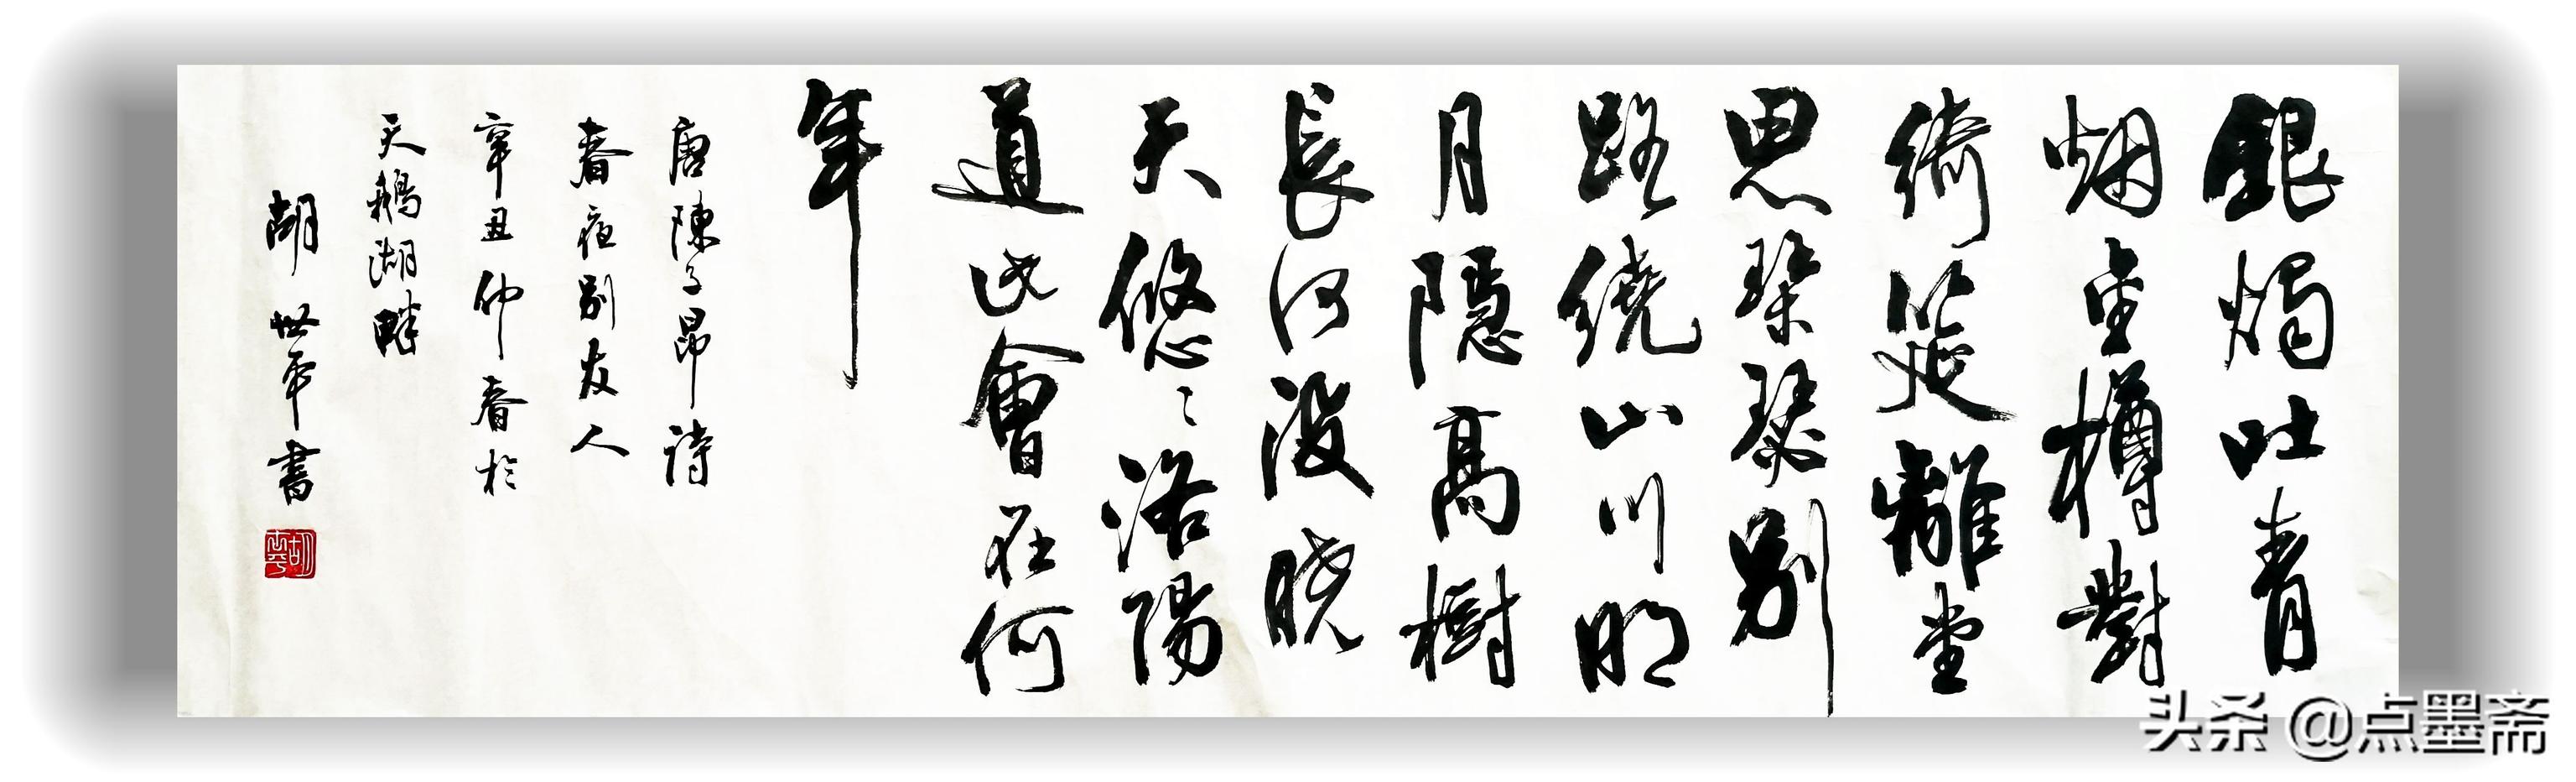 銀燭吐青
烟金樽對
綺筵離堂
思琴瑟別
路繞山川明
月隱高樹
長河没曉
天悠〻洛陽
道此會在何
年
唐陳子昂詩
春夜别友人
辛丑仲春於
天鵝湖畔
胡世平書
头条 @点墨斋